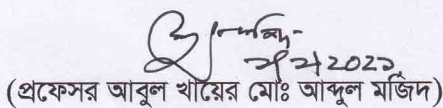 ২০২১
(প্রফেসর আবুল খায়ের মোঃ আব্দুল মজিদ)